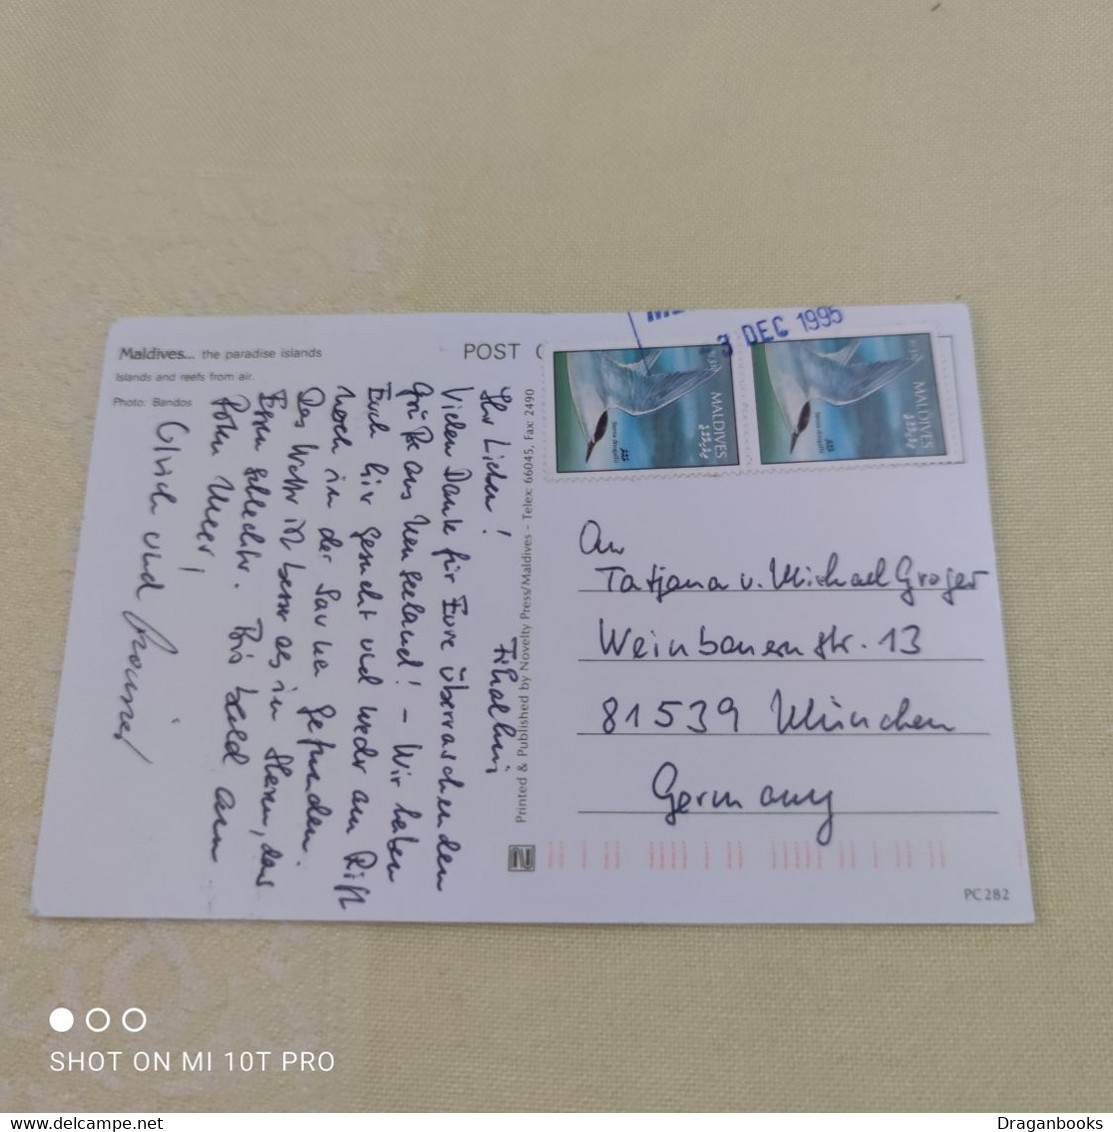 Maldives... the paradise islands
Islands and reefs from air.
Photo: Bandos
POST
3 DEC 1995
MALDIVES
MALDIVES
Filhalhui
Ihr Lieben!
Vielen Dank für Eure überraschenden
Grüße aus Neuseeland! – Wir haben
Euch hier gesucht und weder am Riff
noch in der Sauna gefunden.
Das Wetter ist besser als in Hessen, das
Essen schlechter. Bis bald am
Roten Meer!
Ulrich und
Printed & Published by Novelty Press/Maldives - Telex: 66045, Fax: 2490
An
Tatjana u. Michael Groger
Weinbauernstr. 13
81539 München
Germany
N
PC282
SHOT ON MI 10T PRO
Draganbooks